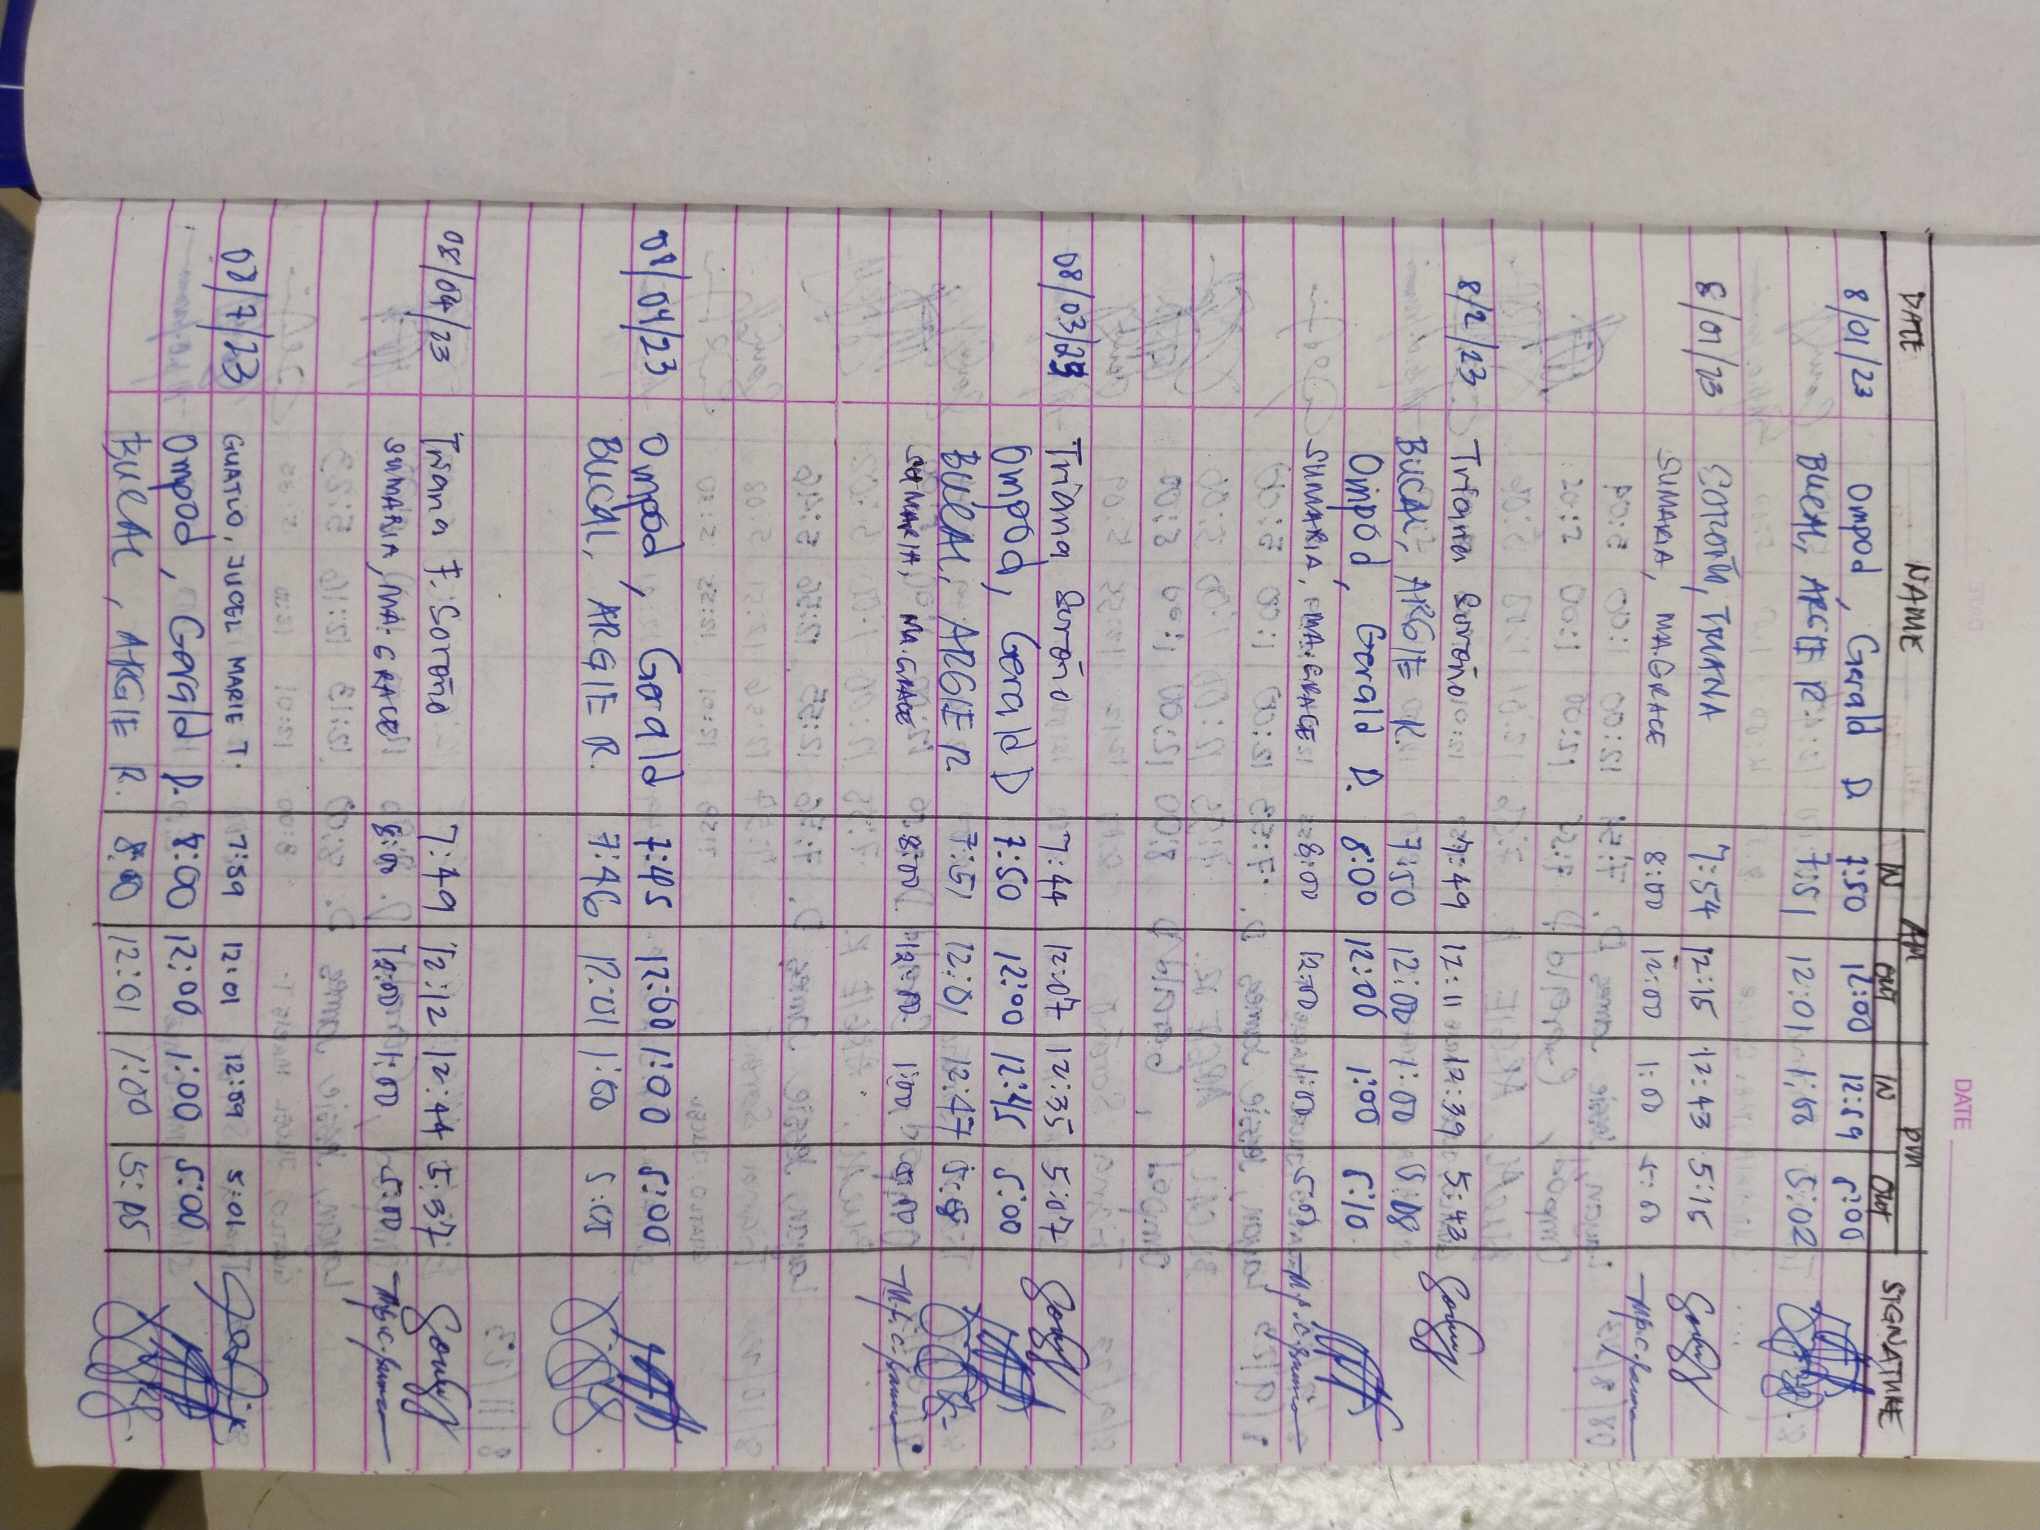 DATE
DATE NAME AM PM SIGNATURE
IN OUT IN OUT
8/01/23 Ompod, Gerald D. 7:50 12:00 12:59 5:00
BUCAL, ARGIE R. 7:51 12:01 1:00 5:02
8/01/23 Soroño, TRIANA 7:54 12:15 12:43 5:15
SUMARIA, MA. GRACE 8:00 12:00 1:00 5:00
8/2/23 Triana Soroño 7:49 12:11 12:39 5:43
BUCAL, ARGIE R. 7:50 12:00 1:00 5:08
Ompod, Gerald D. 8:00 12:00 1:00 5:10
SUMARIA, MA. GRACE 8:00 12:00 1:00 5:00
08/03/23 Triana Soroño 7:44 12:07 12:35 5:07
Ompod, Gerald D 7:50 12:00 12:45 5:00
BUCAL, ARGIE R. 7:51 12:01 12:47 5:05
SUMARIA, MA. GRACE 8:00 12:00 1:00 5:00
08/04/23 Ompod, Gerald 7:45 12:00 1:00 5:00
BUCAL, ARGIE R. 7:46 12:01 1:00 5:05
08/04/23 Triana F. Soroño 7:49 12:12 12:44 5:37
SUMARIA, MA. GRACE 8:00 12:00 1:00 5:00
08/7/23 GUATIO, JUDEL MARIE T. 7:59 12:01 12:59 5:01
Ompod, Gerald D. 8:00 12:00 1:00 5:00
BUCAL, ARGIE R. 8:00 12:01 1:00 5:05